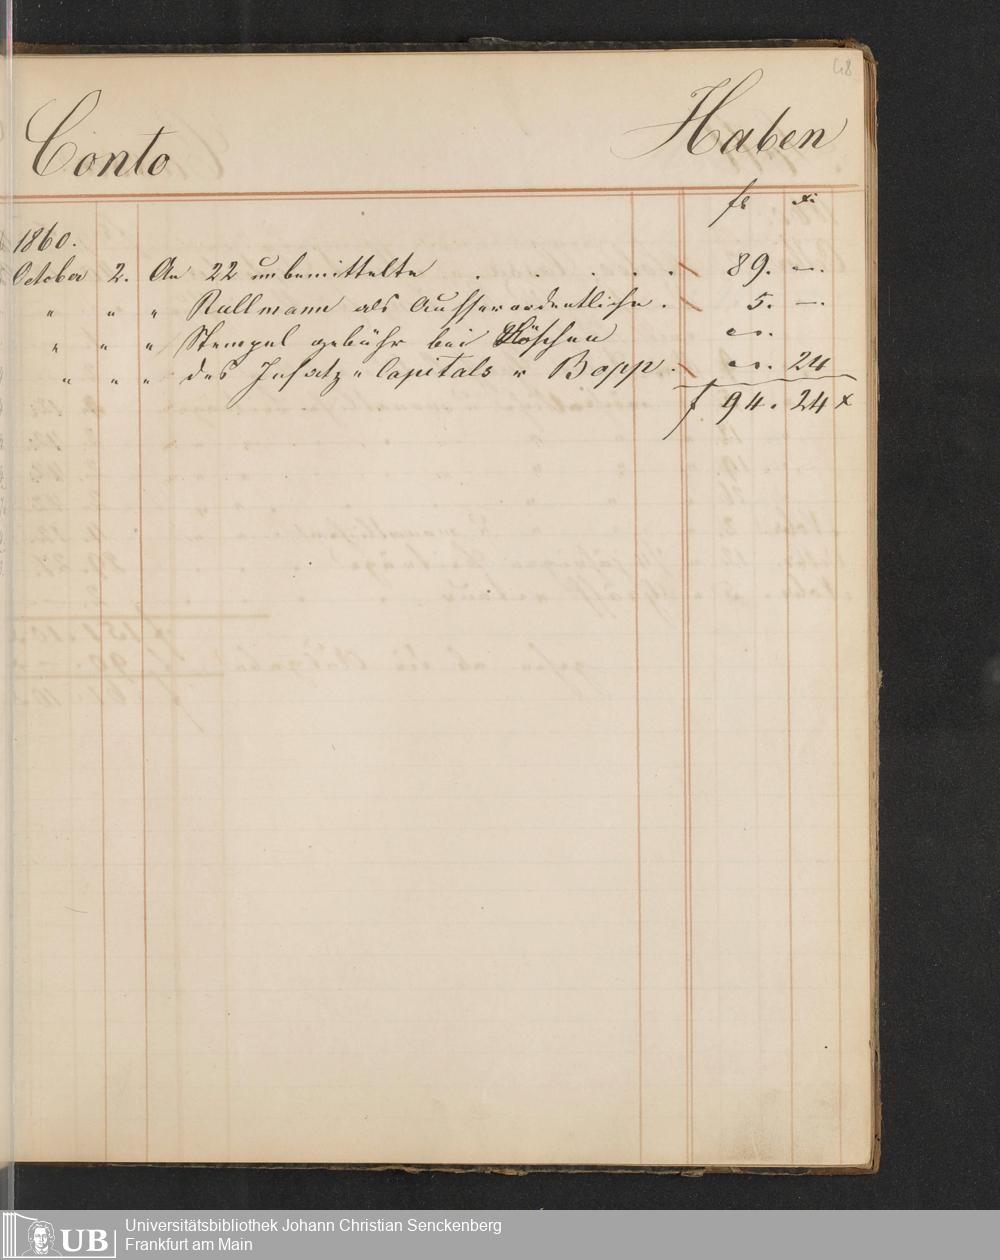 48
Conto Haben
fl xr
1860.
October 2. An 22 unbemittelte . . . . . 89. —.
" " " Rallmann als Aufserordentliche . 5. —.
" " " Stempel gebühr bei Löschen
" " " des Insatz " Capitals v Bopp . 24
f 94. 24 x
UB Universitätsbibliothek Johann Christian Senckenberg
Frankfurt am Main